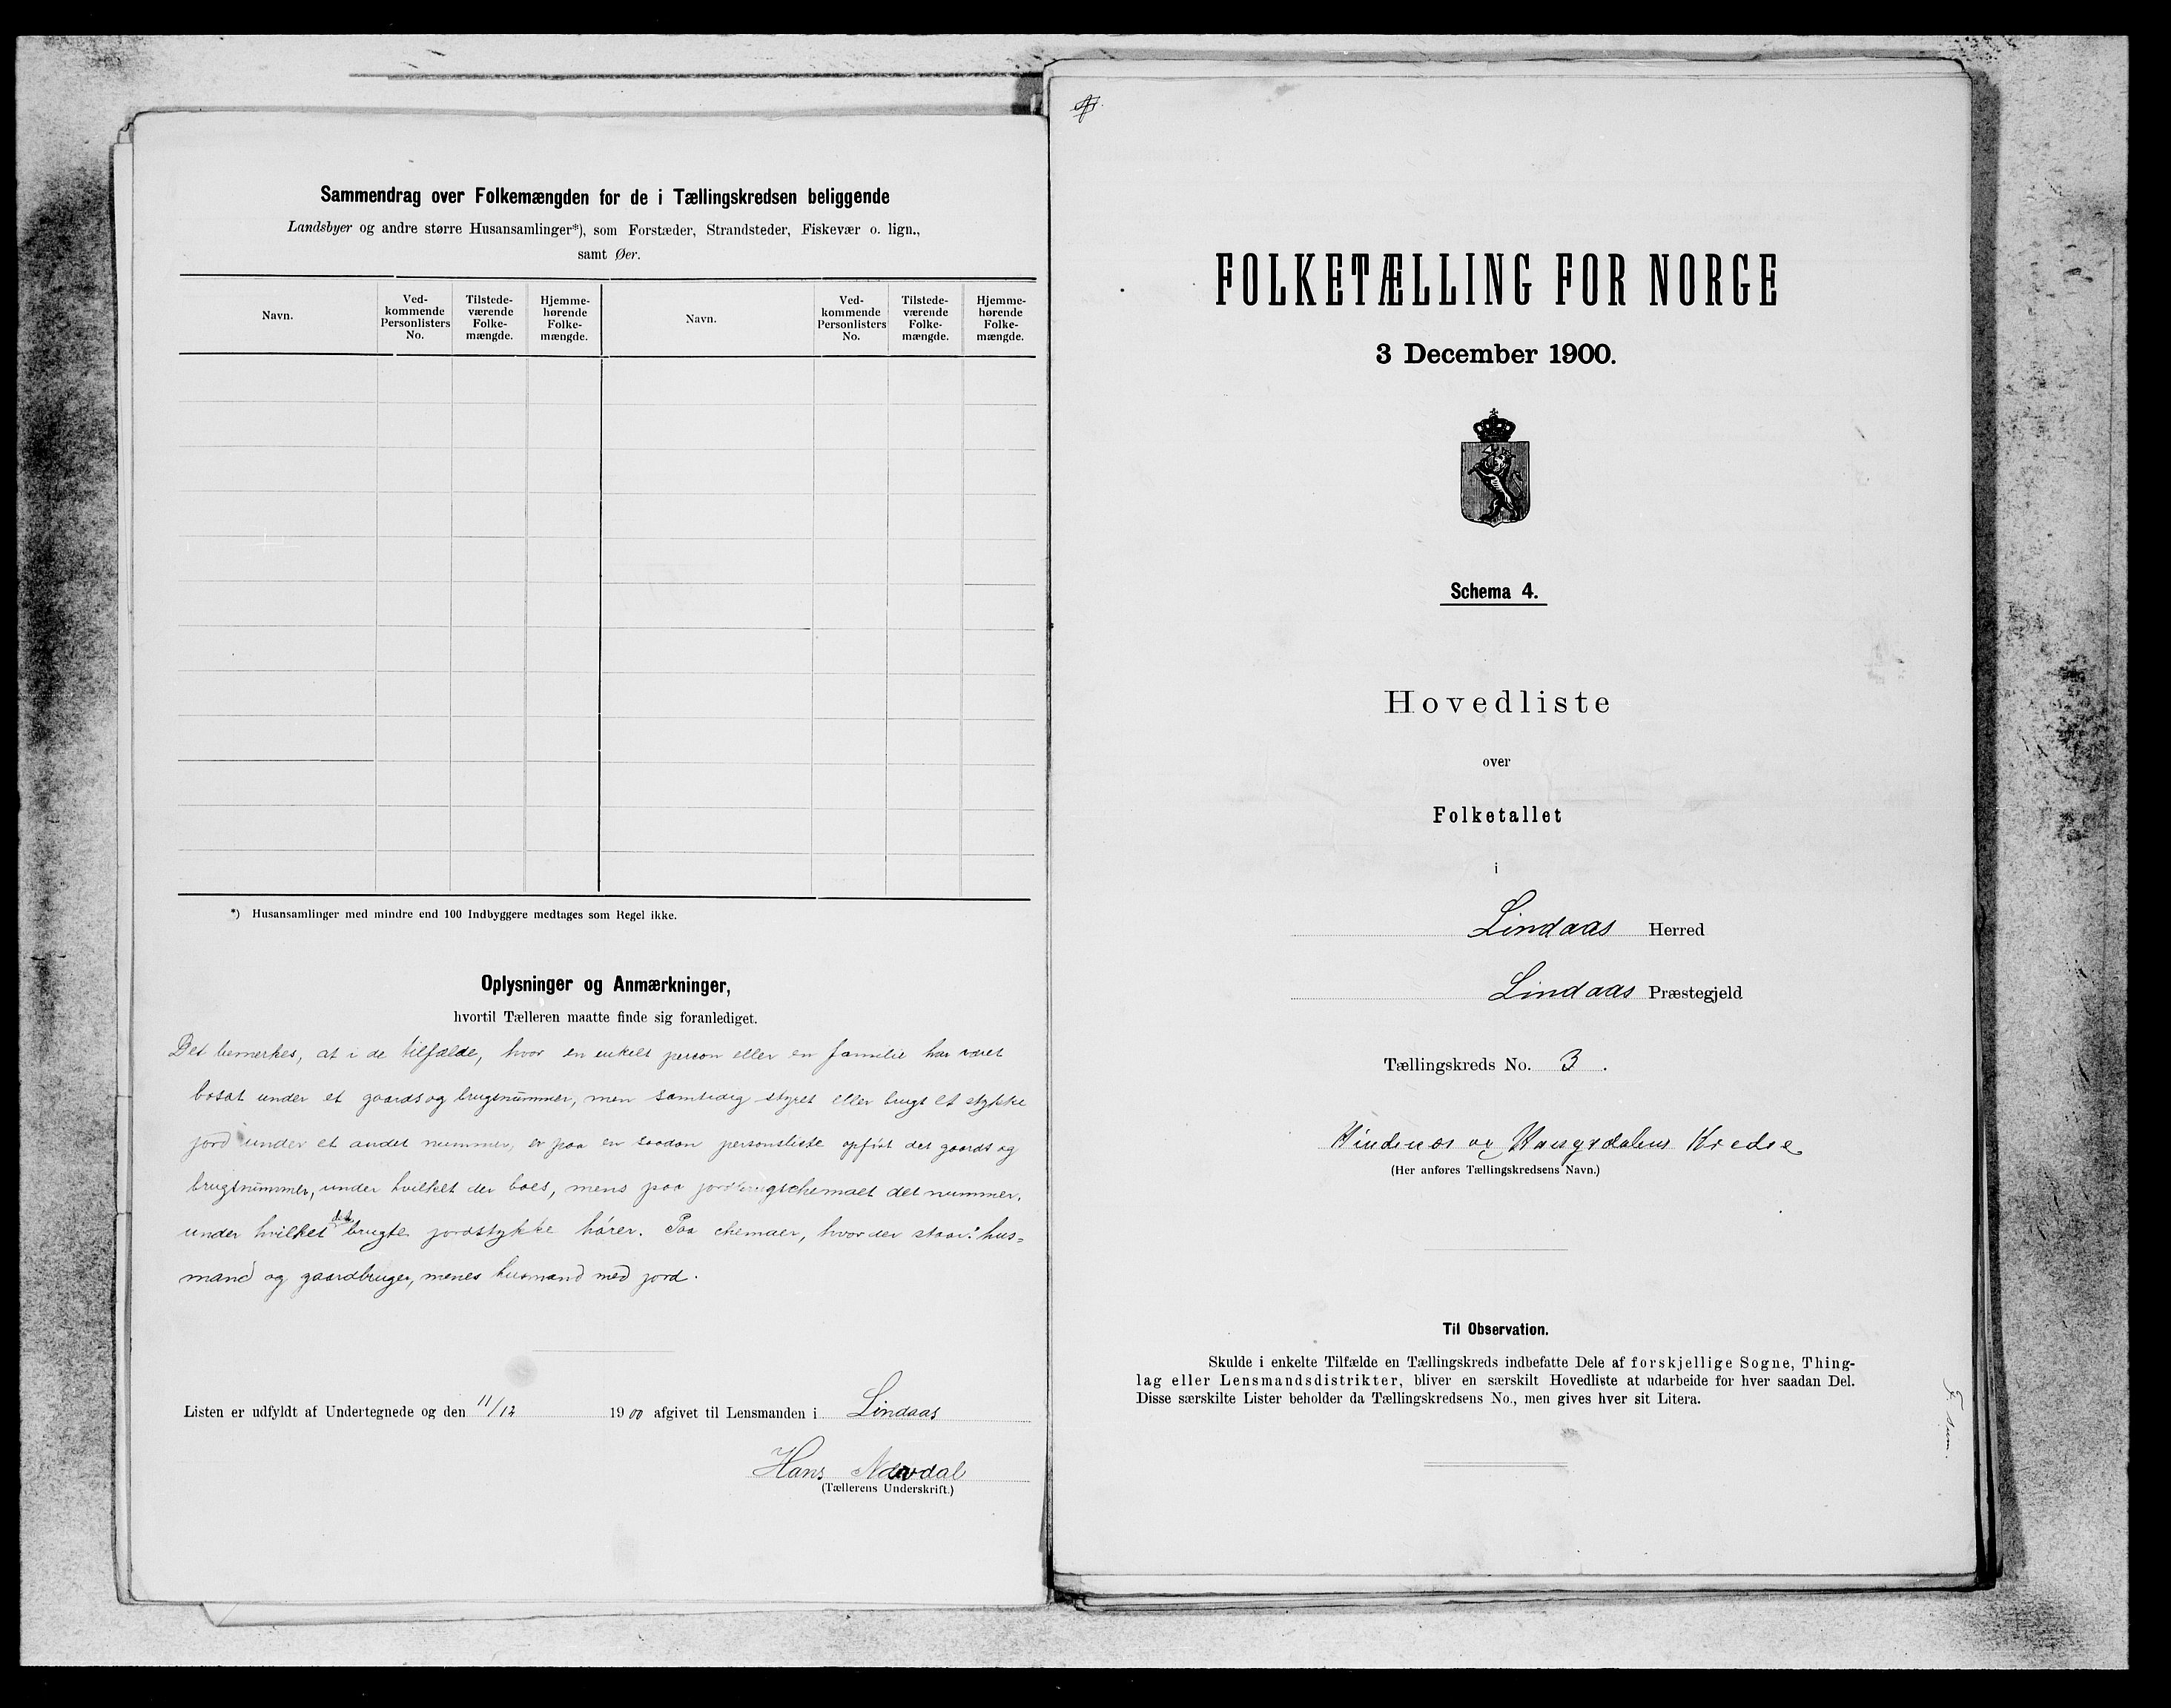 Sammendrag over Folkemængden for de i Tællingskredsen beliggende
Landsbyer og andre større Husansamlinger*), som Forstæder, Strandsteder, Fiskevær o. lign.,
samt Øer.
Navn.
Ved-
kommende
Personlisters
No.
Tilstede-
værende
Folke-
mængde.
Hjemme-
hørende
Folke-
mængde.
Navn.
Ved-
kommende
Personlisters
No.
Tilstede-
værende
Folke-
mængde.
Hjemme-
hørende
Folke-
mængde.
*) Husansamlinger med mindre end 100 Indbyggere medtages som Regel ikke.
Oplysninger og Anmærkninger,
hvortil Tælleren maatte finde sig foranlediget.
Det bemerkes, at i de tilfælde, hvor en enkelt person eller en familie har været
bosat under et gaards og brugsnummer, men samtidig styret eller brugt et stykke
jord under et andet nummer, er paa en saadan personsliste opført det gaards og
brugsnummer, under hvilket der boes, mens paa jordbrugschemaet det nummer,
under hvilket det brugte jordstykke hører. Paa chemaer, hvor der staar: "hus=
mand og gaardbruger, menes husmand med jord.
Listen er udfyldt af Undertegnede og den 11/12 1900 afgivet til Lensmanden i Lindaas
Hans
(Tællerens Underskrift.)
FOLKETÆLLING FOR NORGE
3 December 1900.
Schema 4.
Hovedliste
over
Folketallet
i
Lindaas Herred
Lindaas Præstegjeld
Tællingskreds No. 3.
Hindenes og Kredse
(Her anføres Tællingskredsens Navn.)
Til Observation.
Skulde i enkelte Tilfælde en Tællingskreds indbefatte Dele af forskjellige Sogne, Thing-
lag eller Lensmandsdistrikter, bliver en særskilt Hovedliste at udarbeide for hver saadan Del.
Disse særskilte Lister beholder da Tællingskredsens No., men gives hver sit Litera.